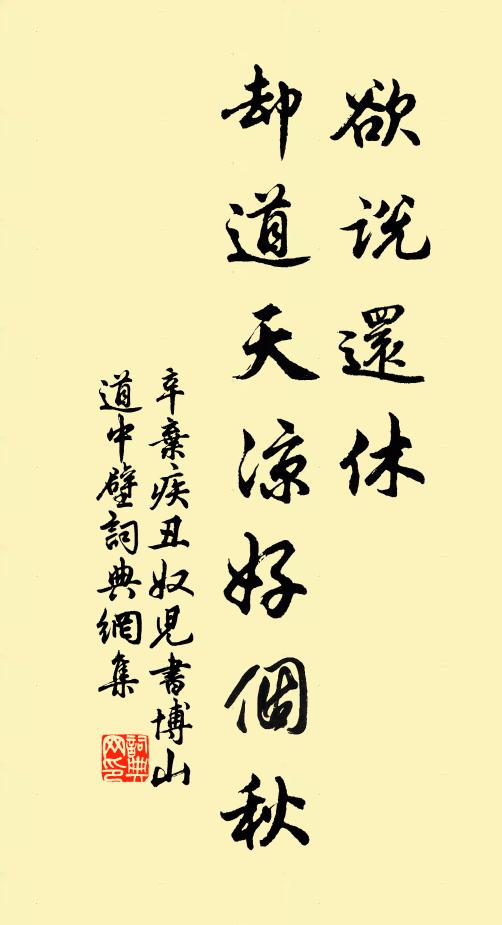 欲説還休
却道天凉好個秋
辛棄疾丑奴児書博山
道中壁詞典網集
詞典
网印